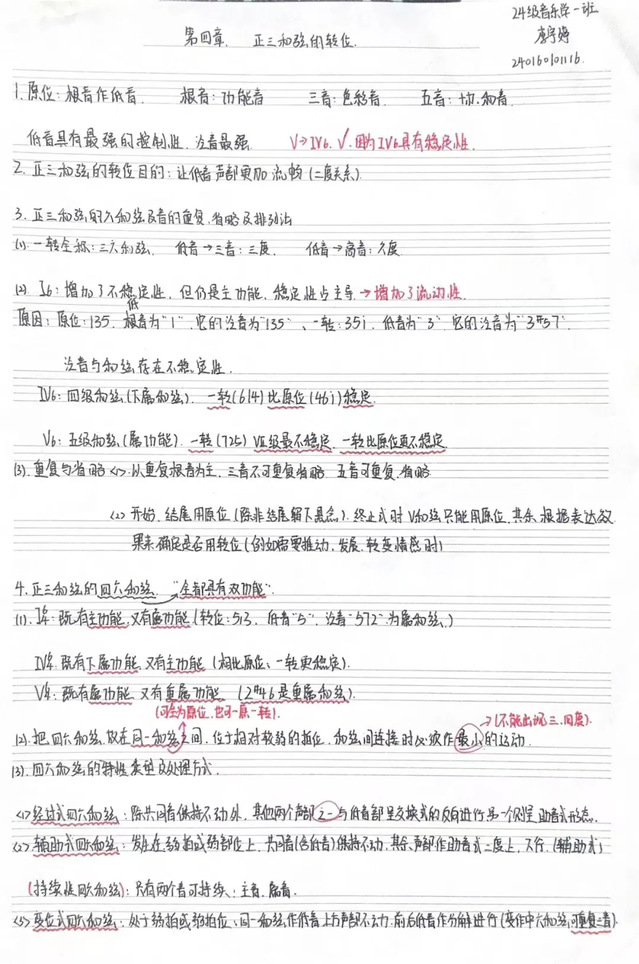 24级音乐学一班
240160101116
第四章. 正三和弦的转位.
1.原位:根音作低音. 根音:功能音 三音:色彩音. 五音:协和音.
低音具有最强的控制性.泛音最强. V→IV6.√.因为IV6具有稳定性.
2.正三和弦的转位目的:让低音声部更加流畅(二度关系)
3.正三和弦的六和弦及音的重复.省略及排列法
(1).一转全称:三六和弦. 低音→三音:三度. 低音→高音:六度
(2) I6:增加了不稳定性.但仍是主功能.稳定性占主导→增加了流动性.
原因:原位:135.低音为"1".它的泛音为"135"、一转:35i.低音为"3".它的泛音为"3#57".
泛音与和弦存在不稳定性.
IV6:四级和弦(下属和弦).一转(614)比原位(46i)稳定.
V6:五级和弦(属功能).一转(725)VII级最不稳定.一转比原位更不稳定
(3).重复与省略<1>.以重复根音为主.三音不可重复省略.五音可重复.省略
<2>开始.结尾用原位(除非结尾留下悬念).终止式时V和弦只能用原位.其余根据表达效
果来确定是否用转位(例如需要推动.发展.转变情感时)
4.正三和弦的四六和弦."全都具有双功能".
(1).I64:既有主功能.又有属功能(转位:513.低音"5".泛音"572"为属和弦.)
IV64.既有下属功能.又有主功能(相比原位、一转更稳定).
V64:既有属功能.又有重属功能.(2#46是重属和弦).
(可全为原位.也可一原一转).
→(不能出现三.四度).
(2).把四六和弦放在同一和弦之间.位于相对较弱的拍位.和弦间连接时必须作最小的运动.
(3).四六和弦的特性类型及处理方式.
<1>经过式四六和弦:除共同音保持不动外.其他两个声部之一与低音部呈交换式的反向进行.另一个则呈助音式形态.
<2>辅助式四六和弦:发生在弱拍或弱部位上.共同音(含低音)保持不动.其余声部作助音式二度上.下行.(辅助式)
(持续性四六和弦):只有两个音可持续:主音.属音.
<5>变位式四六和弦:处于弱拍或弱拍位.同一和弦作低音上方声部不动.前后低音作分解进行(变作中六和弦.可重复三音)